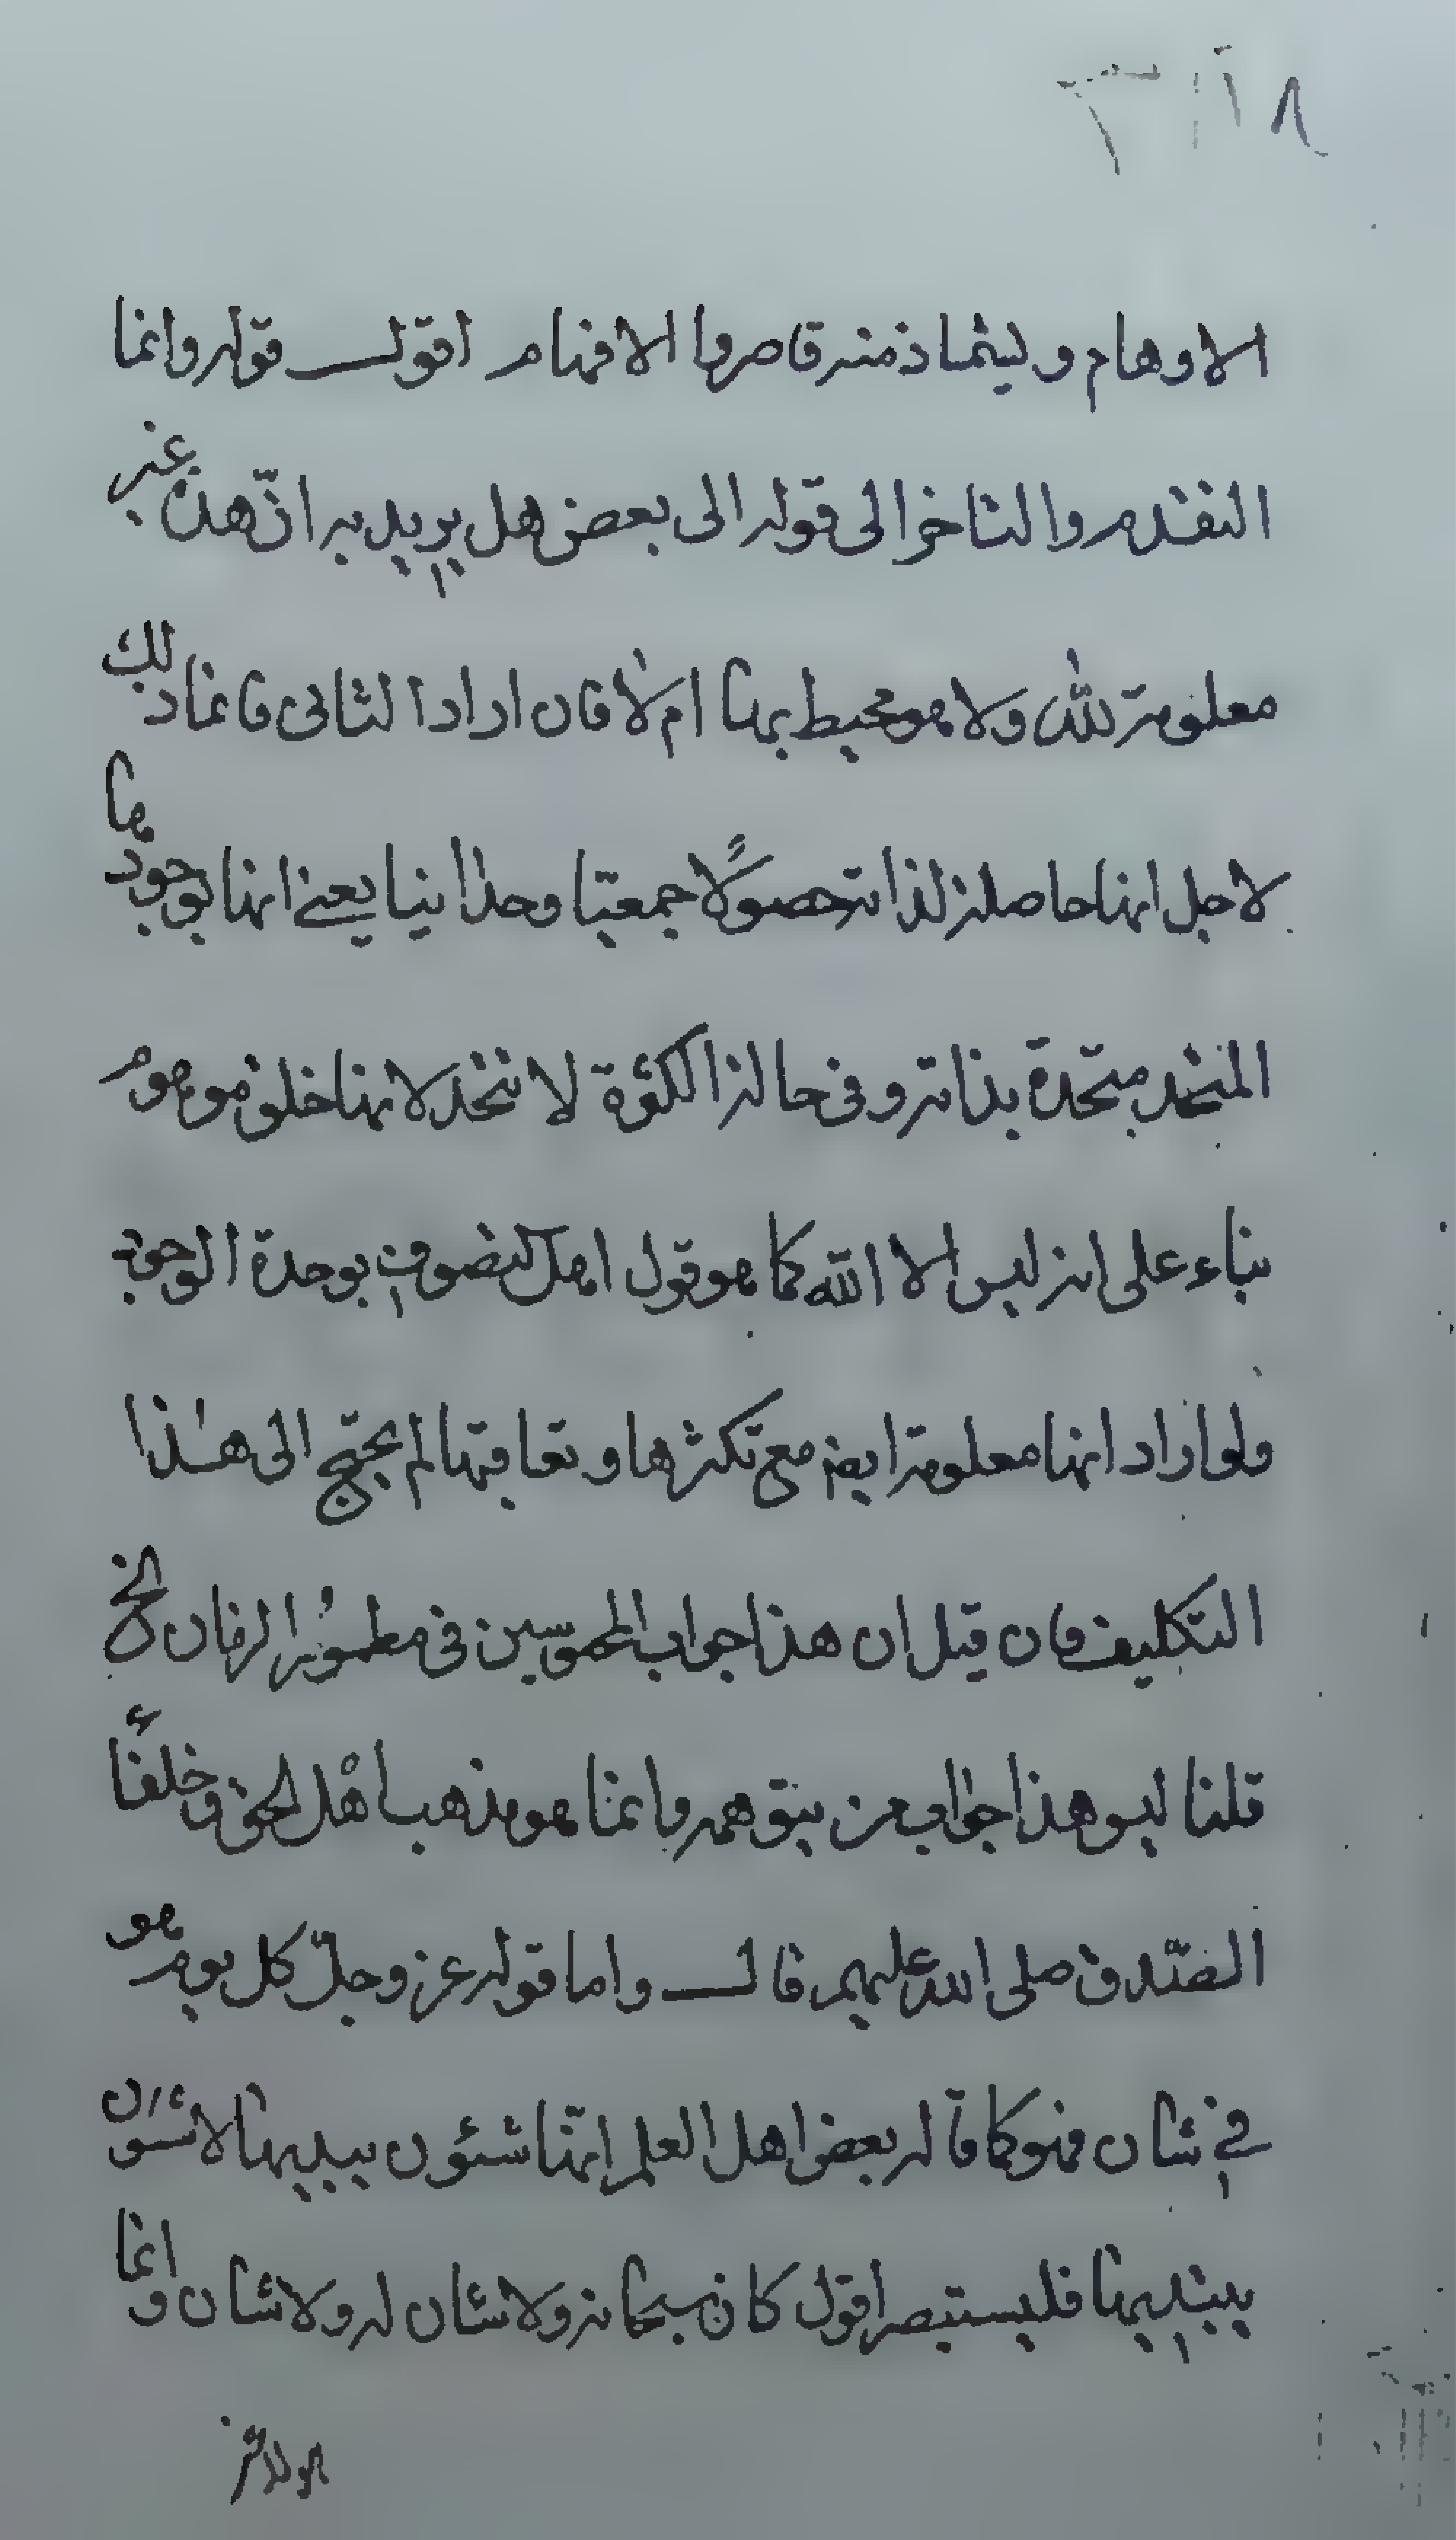 الاوهام وليشماذ منه قاصروا الافهام اقول قوله وانما
التقدم والتاخر الى قوله الى بعض هل يريد به انّ هذه غير
معلومة لله ولا هو محيط بها ام لا فان اراد الثانى فانما ذلك
لاجل انها حاصلة لذاته حصولًا جمعيّا وحدانيا يعنے انها بوجودها
المتحد متّحدة بذاته وفى حالة الكثرة لا تتحد لانها خلق موهوم
بناء على انه ليس الا الله كما هو قول اهل التصوف بوحدة الوجود
ولو اراد انها معلومة ايض مع تكثرها وتعاقبها لم يحتج الى هذا
التكليف فان قيل ان هذا جواب المحبوسين فى مطمورة الزمان الخ
قلنا ليس هذا جواب من يتوهم وانما هو مذهب اهل الحق وخلفاء
الصّدق صلى الله عليهم قال واما قوله عز وجلّ كل يوم هو
في شان فهو كما قاله بعض اهل العلم انها شئون يبديها لا شئون
يبتديها فليستبصر اقول كان سبحانه ولا شان له ولا شان وانما